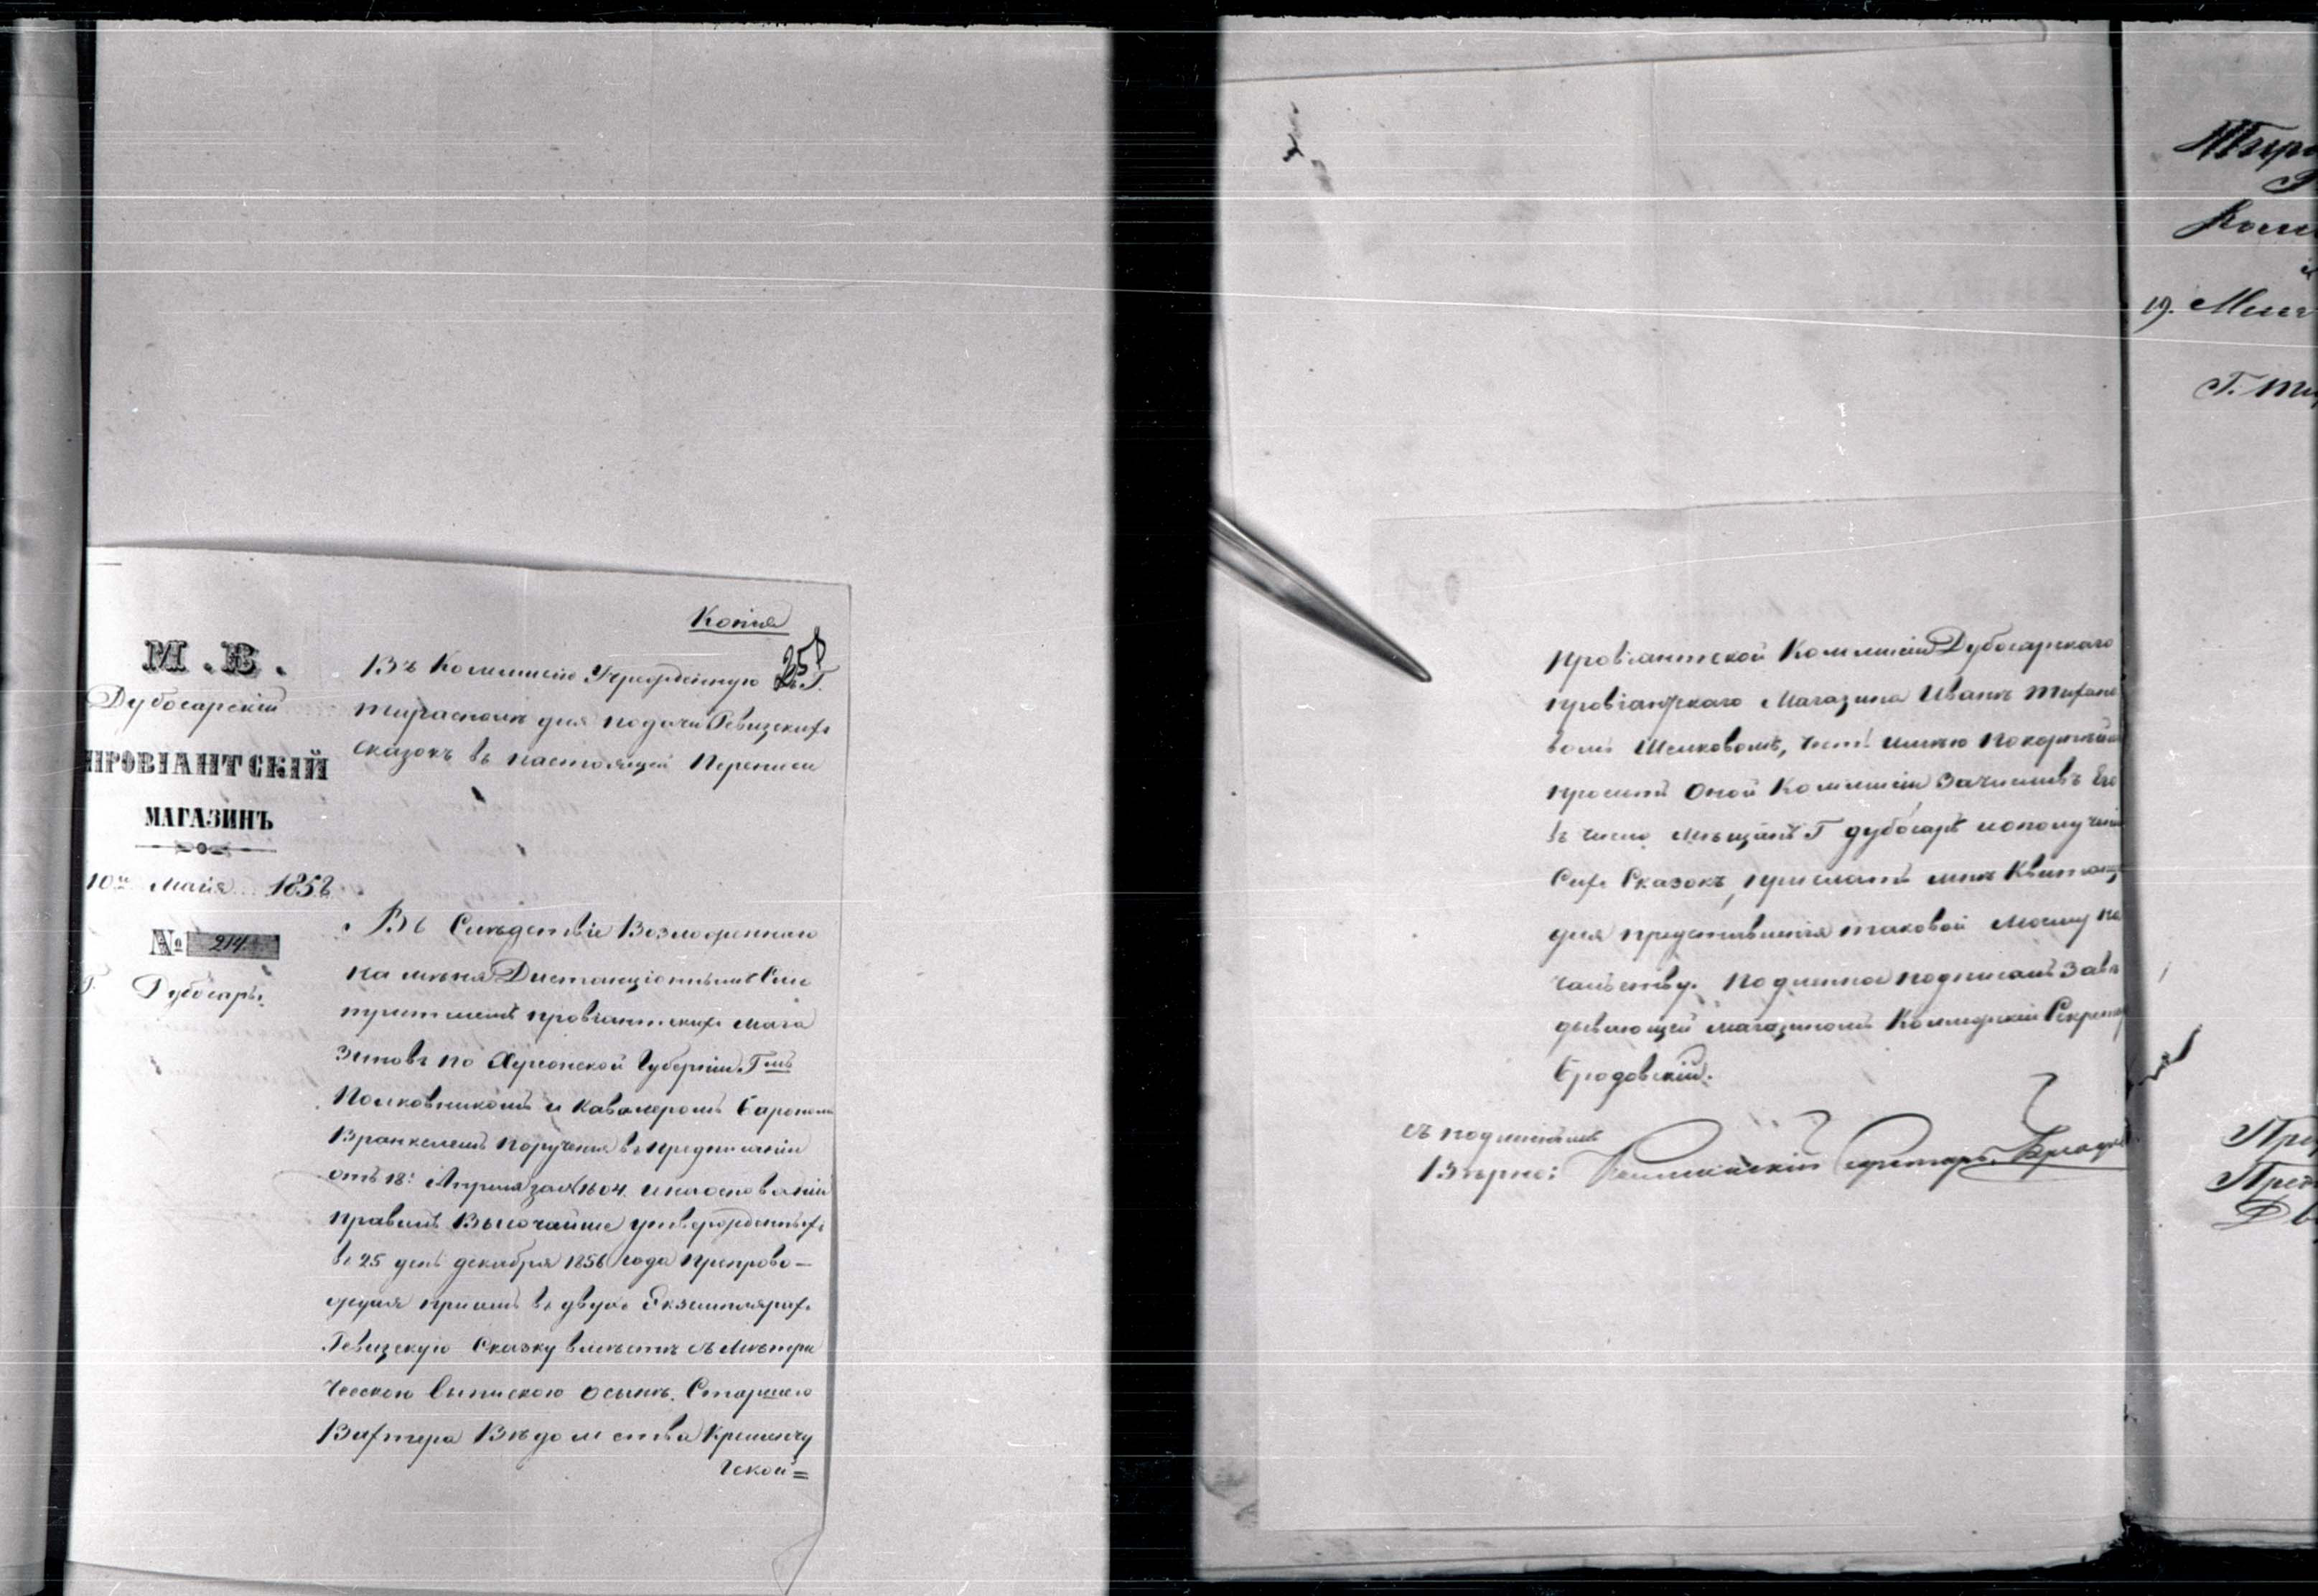 Копія
М. В.
Дубосарскій
ПРОВІАНТСКІЙ
МАГАЗИНЪ
10го Маія 1858
№ 214
Г. Дубосары
Въ Коммисію Учрежденную въ Г.
Тирасполѣ для подачи Ревизскихъ
сказокъ въ настоящей Переписи
Въ Слѣдствіе Возложеннаго
на меня Дистанціоннымъ Смо
трителемъ провіантскихъ мага
зиновъ по Херсонской Губерніи Гмъ
Полковникомъ и Кавалеромъ Барономъ
Вранкелемъ порученія въ предписаніи
отъ 18: Апреля за №1604. и на основаніи
правилъ Высочайше утвержденныхъ
въ 25 день декабря 1856 года Препрово–
ждая присемъ въ двухъ Екземплярахъ
Ревизскую Сказку вмѣстѣ съ Метри
ческою выпискою о сынѣ Старшего
Вахтера Вѣдомства Кременчу
гской=
провіантской Коммисіи Дубосарскаго
провіантскаго Магазина Иванѣ
Шелковомъ, честь имѣю Покорнѣйше
просить Оной Коммисіи Зачисливъ Его
въ число мѣщанъ Г дубосаръ и по получ
Сихъ Сказокъ, прислать мнѣ Квитан
для представленія таковой Моему на
чальству. Подлинное подписалъ Завѣ
дывающій магазиномъ Коллежскій Секретар
Бродовскій.
съ подлиннымъ
Вѣрно: Секретарь
19.